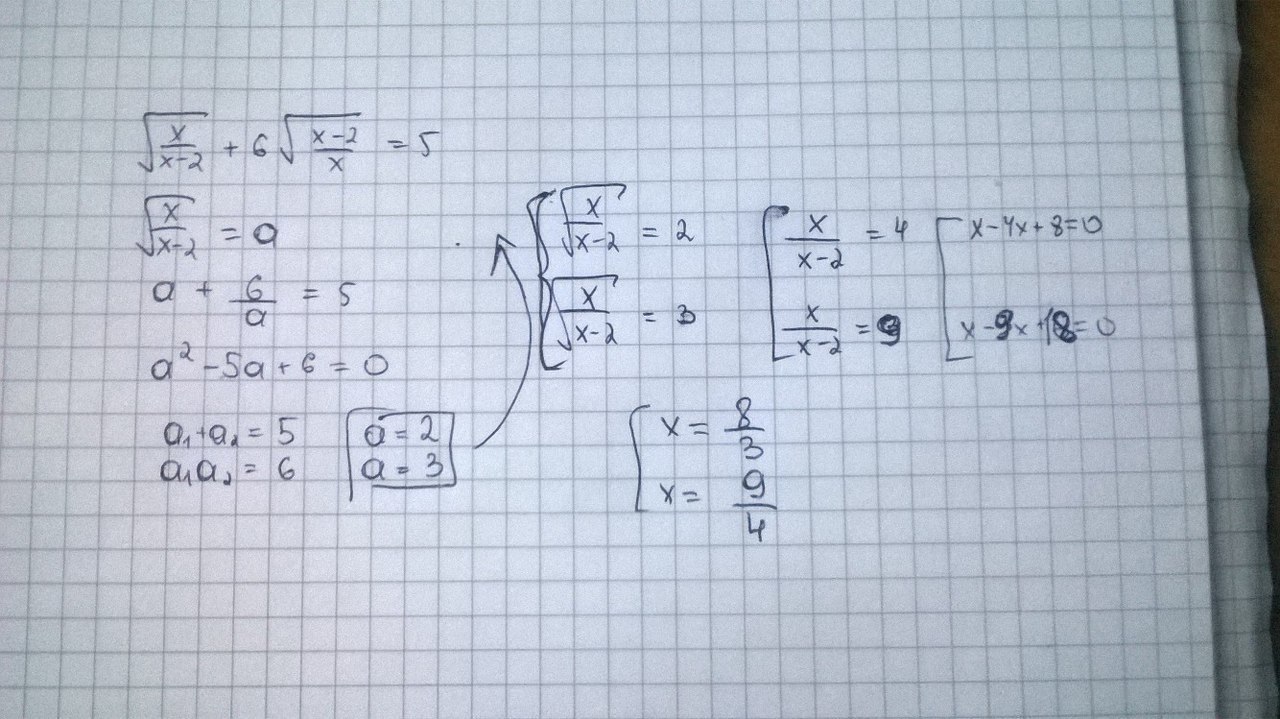 √(x/(x-2)) + 6√((x-2)/x) = 5
√(x/(x-2)) = a
a + 6/a = 5
a² - 5a + 6 = 0
a₁+a₂ = 5
a₁a₂ = 6
a = 2
a = 3
√(x/(x-2)) = 2
√(x/(x-2)) = 3
x/(x-2) = 4
x/(x-2) = 9
x-4x+8=0
x-9x+18=0
x = 8/3
x = 9/4